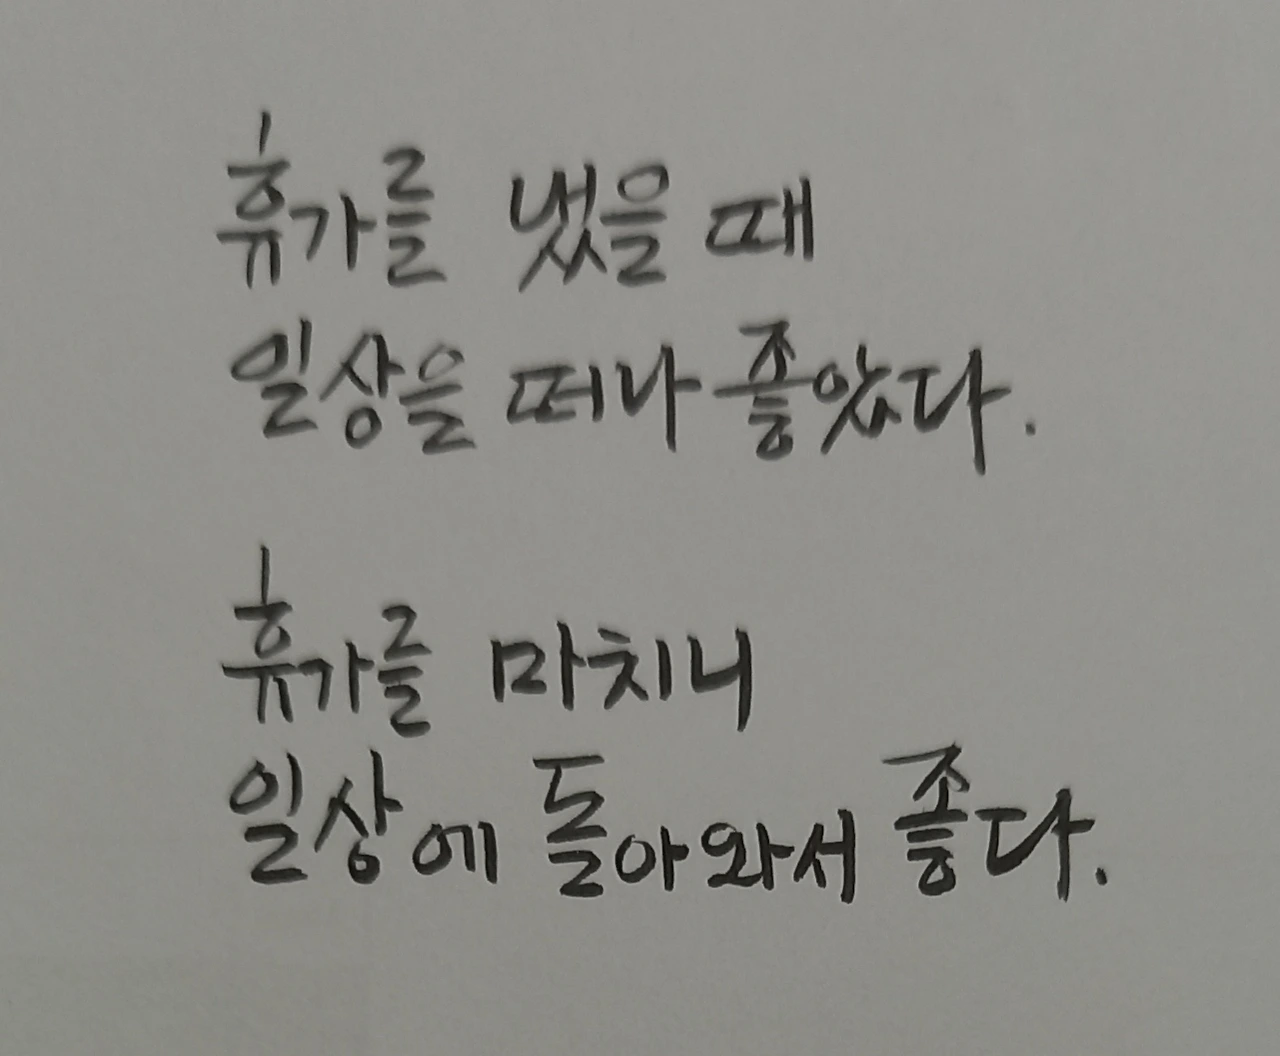 휴가를 냈을 때
일상을 떠나 좋았다.
휴가를 마치니
일상에 돌아와서 좋다.